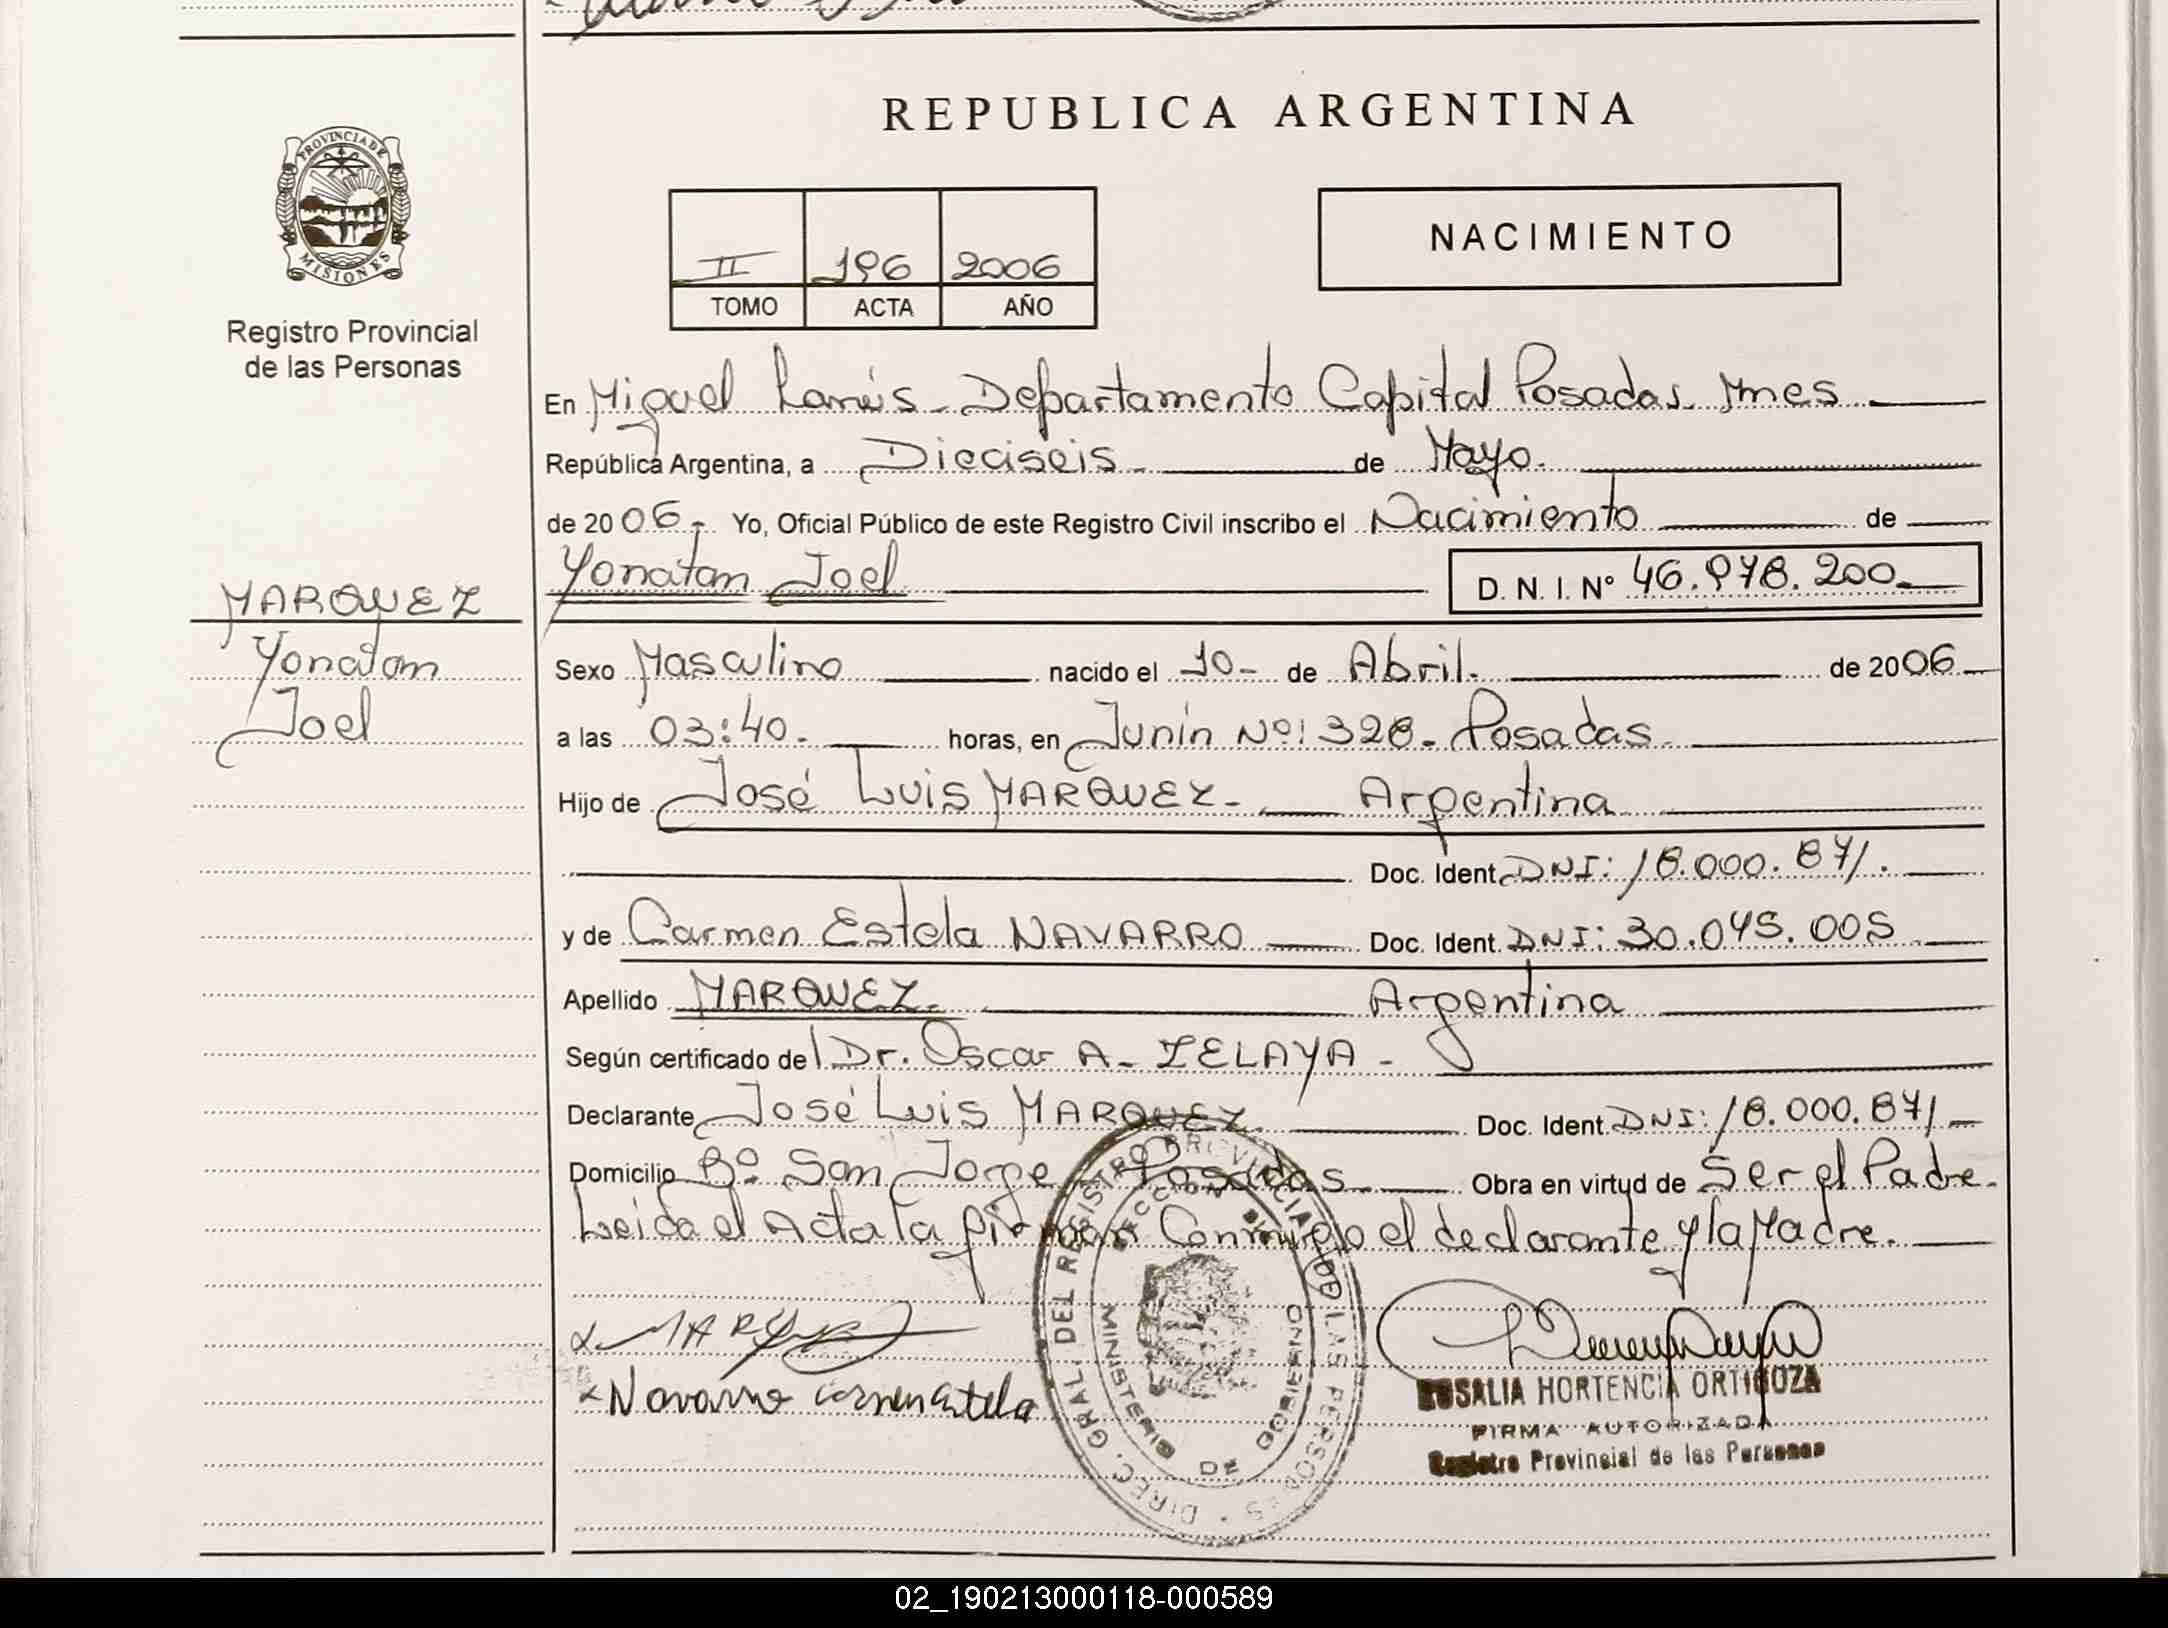 REPUBLICA ARGENTINA
PROVINCIA DE
MISIONES
Registro Provincial
de las Personas
II 196 2006
TOMO ACTA AÑO
NACIMIENTO
En Miguel Lanús - Departamento Capital Posadas Mnes
República Argentina, a Dieciseis de Mayo.
de 2006- Yo, Oficial Público de este Registro Civil inscribo el Nacimiento de
Yonatan Joel D. N. I. Nº 46.978.200
MARQUEZ
Yonatan
Joel
Sexo Masculino nacido el 10- de Abril. de 2006
a las 03:40. horas, en Junín Nº 1328. Posadas
Hijo de José Luis MARQUEZ - Argentina
Doc. Ident. DNI: 18.000.871.
y de Carmen Estela NAVARRO Doc. Ident. DNI: 30.045.005
Apellido MARQUEZ. Argentina
Según certificado del Dr. Oscar A. ZELAYA -
Declarante José Luis MARQUEZ Doc. Ident. DNI: 18.000.871
Domicilio Bº San Jorge Posadas Obra en virtud de Ser el Padre.
Leida el Acta la firman Conmigo el declarante y la Madre.
Navarro carmen Estela
DIREC. GRAL. DEL REGISTRO PROVINCIAL DE LAS PERSONAS
MINISTERIO DE GOBIERNO
ROSALIA HORTENCIA ORTIGOZA
FIRMA AUTORIZADA
Registro Provincial de las Personas
02_190213000118-000589